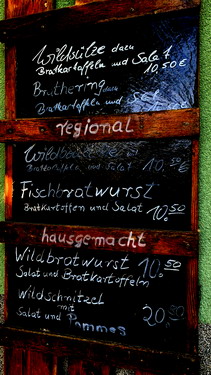 Wildsülze dazu
Bratkartoffeln und Salat
10,50€
Brathering dazu
Bratkartoffeln und Salat
regional
Bratkartoffeln und Salat 10,50
Fischbratwurst
Bratkartoffen und Salat 10,50
hausgemacht
Wildbratwurst 10,50
Salat und Bratkartoffeln
Wildschnitzel
mit
Salat und Pommes 20,50